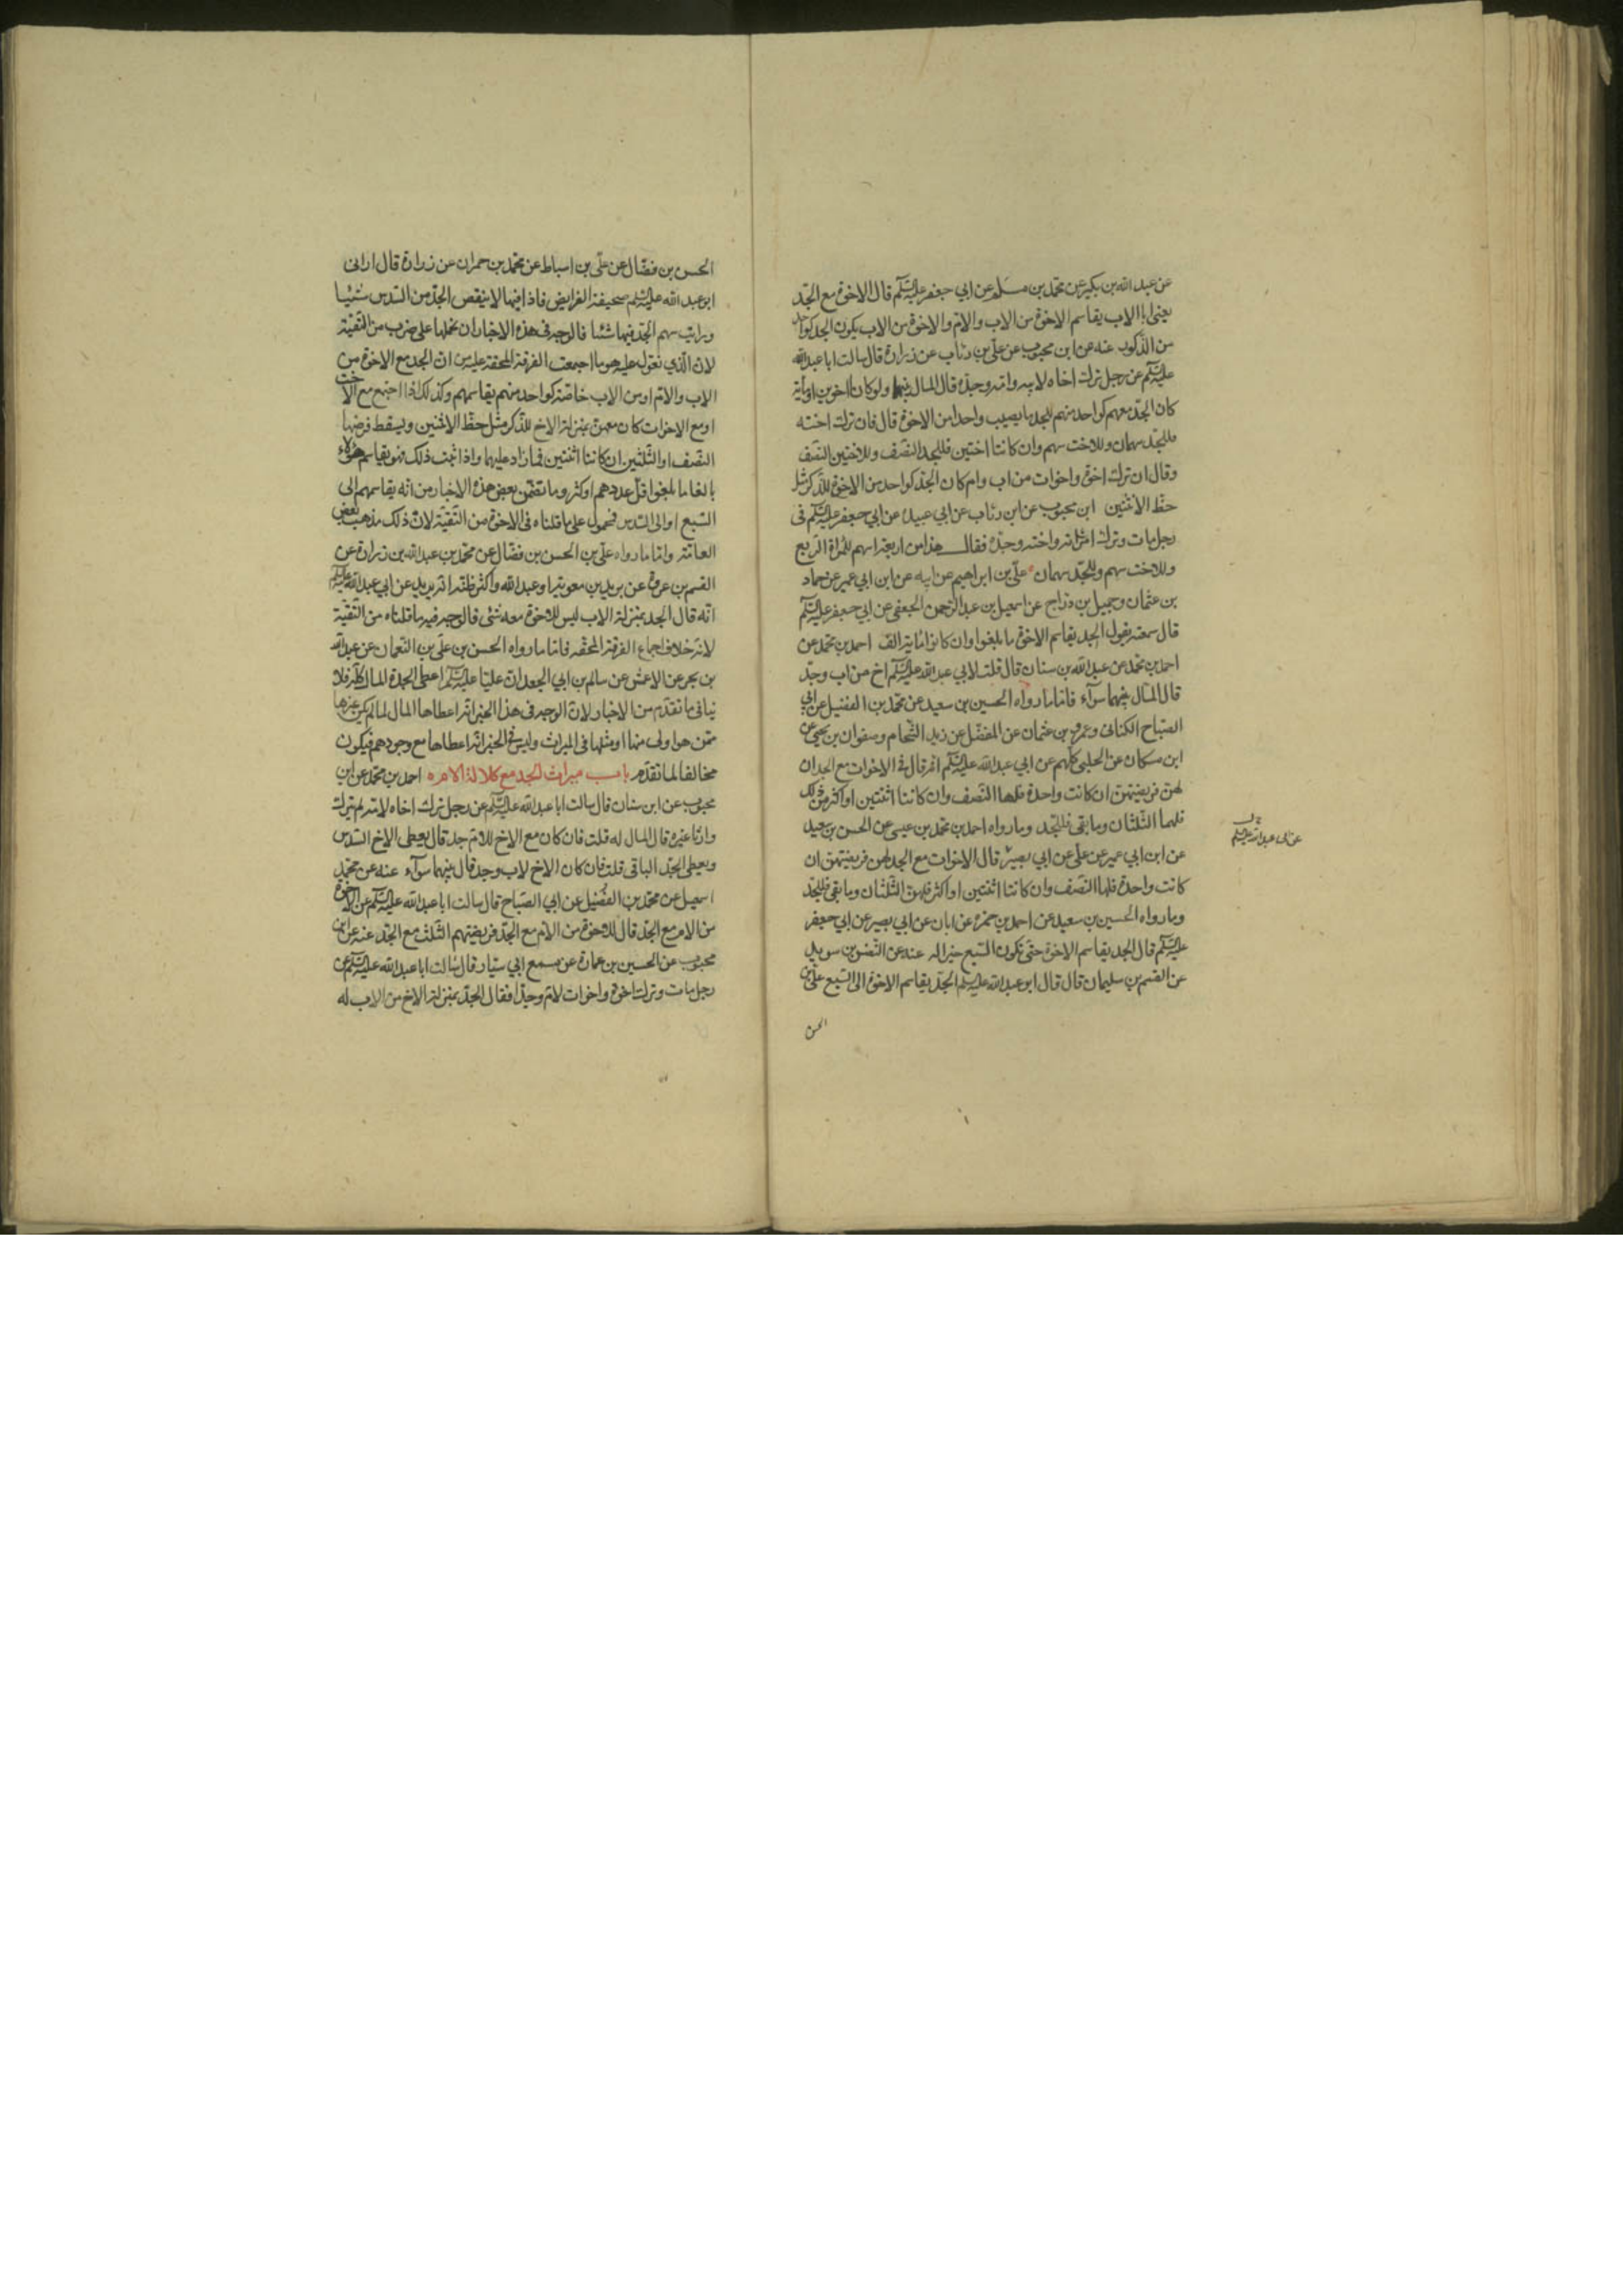 عن عبد الله بن بكير عن محمد بن مسلم عن ابي جعفر عليه السلم قال الاخوة مع الجد
يعني ابا الاب يقاسم الاخوة من الاب والام والاخوة من الاب يكون الجد كواحد
من الذكور عنه عن ابن محبوب عن علي بن رئاب عن زرارة قال سالت ابا عبد الله
عليه السلم عن رجل ترك اخاه لابيه وامه وجده قال المال بينهما ولو كانا اخوين او مأية
كان الجد معهم كواحد منهم للجد ما يصيب واحدا من الاخوة قال فان ترك اخته
فللجد سهمان وللاخت سهم وان كانتا اختين فللجد النصف وللاختين النصف
وقال ان ترك اخوة واخوات من اب وام كان الجد كواحد من الاخوة للذكر مثل
حظ الانثيين ابن محبوب عن ابن رئاب عن ابي عبيدة عن ابي جعفر عليه السلم في
رجل مات وترك امراته واخته وجده فقال هذا من اربعة اسهم للمراة الربع
وللاخت سهم وللجد سهمان علي بن ابراهيم عن ابيه عن ابن ابي عمير عن حماد
بن عثمان وجميل بن دراج عن اسمعيل بن عبد الرحمن الجعفي عن ابي جعفر عليه السلم
قال سمعته يقول الجد يقاسم الاخوة ما بلغوا وان كانوا مائة الف احمد بن محمد عن
احمد بن محمد عن عبد الله بن سنان قال قلت لابي عبد الله عليه السلم اخ من اب وجد
قال المال بينهما سوآء فاما ما رواه الحسين بن سعيد عن محمد بن الفضيل عن ابي
الصباح الكناني وعمرو بن عثمان عن المفضل عن زيد الشحام وصفوان بن يحيى عن
ابن مسكان عن الحلبي كلهم عن ابي عبد الله عليه السلم انه قال في الاخوات مع الجد ان
لهن فريضتهن ان كانت واحدة فلها النصف وان كانتا اثنتين او اكثر من ذلك
فلهما الثلثان وما بقي فللجد وما رواه احمد بن محمد بن عيسى عن الحسن بن سعيد
عن ابن ابي عمير عن علي عن ابي بصير قال الاخوات مع الجد لهن فريضتهن ان
كانت واحدة فلها النصف وان كانتا اثنتين او اكثر فلهن الثلثان وما بقي فللجد
وما رواه الحسين بن سعيد عن احمد بن حمزة عن ابان عن ابي بصير عن ابي جعفر
عليه السلم قال الجد يقاسم الاخوة حتى تكون السبع خيرا له عنه عن النضر بن سويد
عن القسم بن سليمان قال قال ابو عبد الله عليه السلم الجد يقاسم الاخوة الى السبع علي بن
الحسن
عن ابي عبد الله عليه السلم
الحسن بن فضال عن علي بن اسباط عن محمد بن حمران عن زرارة قال اراني
ابو عبد الله عليه السلم صحيفة الفرايض فاذا فيها لا ينقص الجد من السدس شيئا
ورايت سهم الجد فيها مثبتا فالوجه في هذه الاخبار ان نحملها على ضرب من التقية
لان الذي نعول عليه هو ما اجمعت الفرقة المحقة عليه من ان الجد مع الاخوة من
الاب والام او من الاب خاصة كواحد منهم يقاسمهم وكذلك اذا اجتمع مع الاخت
او مع الاخوات كان معهن بمنزلة الاخ للذكر مثل حظ الانثيين ويسقط فرضها
النصف او الثلثين ان كانتا اثنتين فما زاد عليهما واذا ثبت ذلك فهو يقاسم هؤلاء
بالغا ما بلغوا قل عددهم او كثر وما تضمن بعض هذه الاخبار من انه يقاسمهم الى
السبع او الى السدس فمحمول على ما قلناه في الاخوة من التقية لان ذلك مذهب بعض
العامة واما ما رواه علي بن الحسن بن فضال عن محمد بن عبد الله بن زرارة عن
القسم بن عروة عن بريد بن معوية او عبد الله واكثر ظنه انه بريد عن ابي عبد الله عليه السلم
انه قال الجد بمنزلة الاب ليس للاخوة معه شئ فالوجه فيه ما قلناه من التقية
لانه خلاف اجماع الفرقة المحقة فاما ما رواه الحسن بن علي بن النعمان عن عبد الله
بن بحر عن الاعمش عن سالم بن ابي الجعد ان عليا عليه السلم اعطى الجدة المال كله فلا
ينافي ما تقدم من الاخبار لان الوجه في هذا الخبر انه اعطاها المال لما لم يكن غيرها
ممن هو اولى منها او مثلها في الميراث وليس في الخبر انه اعطاها مع وجودهم فيكون
مخالفا لما تقدم باب ميراث الجد مع كلالة الام احمد بن محمد عن ابن
محبوب عن ابن سنان قال سالت ابا عبد الله عليه السلم عن رجل ترك اخاه لامه لم يترك
وارثا غيره قال المال له قلت فان كان مع الاخ للام جد قال يعطى الاخ السدس
ويعطى الجد الباقي قلت فان كان الاخ لاب وجد قال بينهما سوآء عنه عن محمد بن
اسمعيل عن محمد بن الفضيل عن ابي الصباح قال سالت ابا عبد الله عليه السلم عن الاخوة
من الام مع الجد قال للاخوة من الام مع الجد فريضتهم الثلث مع الجد عنه عن ابن
محبوب عن الحسين بن عمارة عن مسمع ابي سيار قال سالت ابا عبد الله عليه السلم عن
رجل مات وترك اخوة واخوات لام وجدا فقال الجد بمنزلة الاخ من الاب له